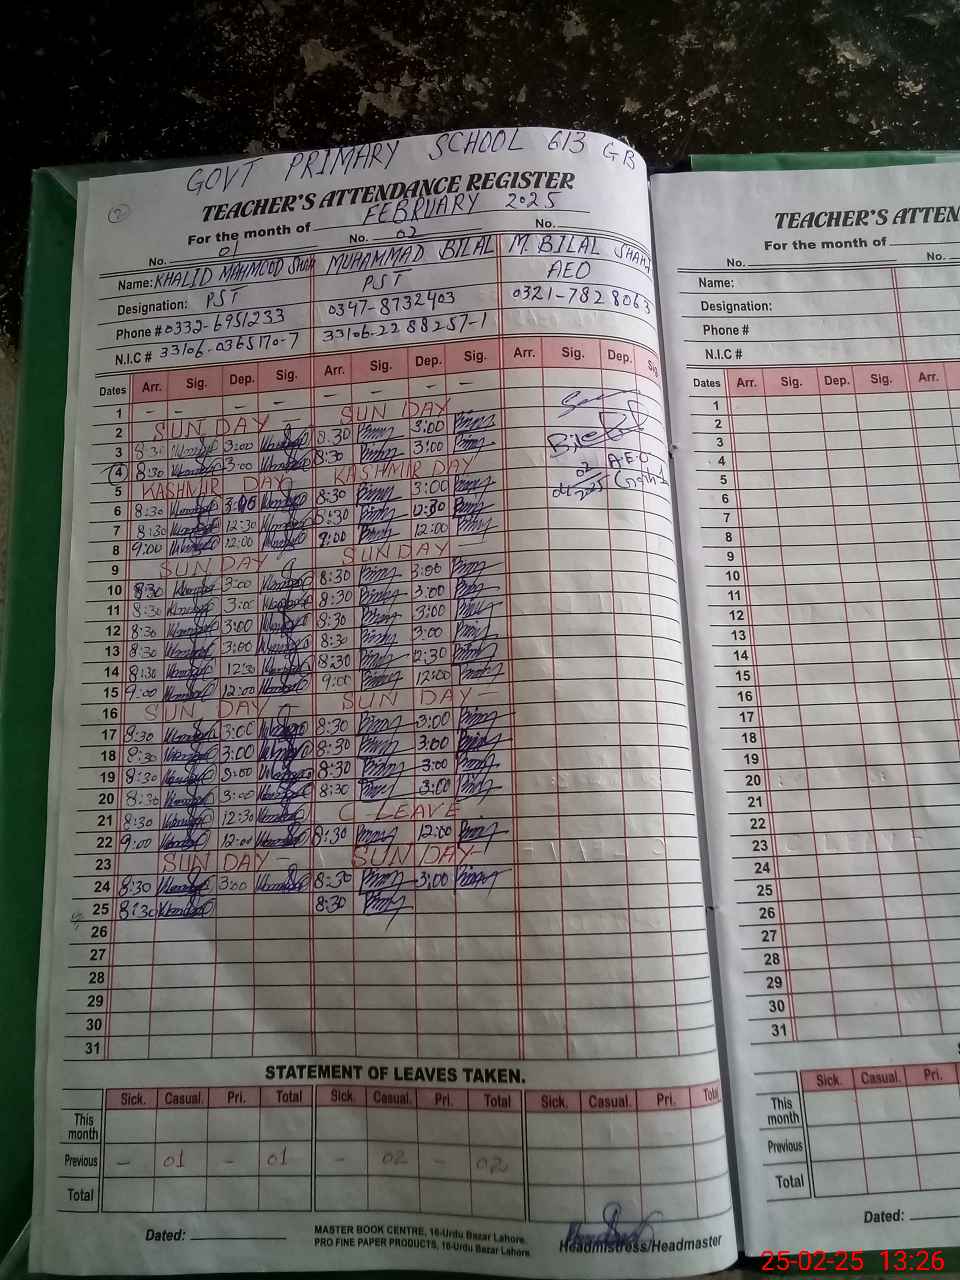 GOVT PRIMARY SCHOOL 613 GB
TEACHER'S ATTENDANCE REGISTER
For the month of FEBRUARY 2025
No. 01 No. 02 No.
Name: KHALID MAHMOOD MUHAMMAD BILAL M. BILAL
Designation: PST PST AEO
Phone # 0332-6951233 0347-8732403 0321-7828063
N.I.C # 33106-0365170-7 33106-2288257-1
Dates Arr. Sig. Dep. Sig. Arr. Sig. Dep. Sig. Arr. Sig. Dep. Sig.
1 - - - - - -
2 SUNDAY - SUN DAY
3 8:30 3:00 8:30 3:00
4 8:30 3:00 8:30 3:00
5 KASHMIR DAY KASHMIR DAY
6 8:30 8:30 3:00
7 8:30 12:30 8:30 12:30
8 9:00 12:00 9:00 12:00
9 SUNDAY SUNDAY
10 8:30 3:00 8:30 3:00
11 8:30 3:00 8:30 3:00
12 8:30 3:00 8:30 3:00
13 8:30 3:00 8:30 3:00
14 8:30 12:30 8:30 12:30
15 9:00 12:00 9:00 12:00
16 SUNDAY SUNDAY -
17 8:30 3:00 8:30 3:00
18 8:30 3:00 8:30 3:00
19 8:30 3:00 8:30 3:00
20 8:30 3:00 8:30 3:00
21 8:30 12:30 C-LEAVE
22 9:00 12:00 8:30 12:00
23 SUNDAY - SUNDAY -
24 8:30 3:00 8:30 3:00
25 8:30 8:30
26
27
28
29
30
31
A.E.O
STATEMENT OF LEAVES TAKEN.
Sick. Casual. Pri. Total Sick. Casual. Pri. Total Sick. Casual. Pri. Total
This month
Previous - 01 - 01 - 02 - 02
Total
Dated:
MASTER BOOK CENTRE, 16-Urdu Bazar Lahore.
PRO FINE PAPER PRODUCTS, 16-Urdu Bazar Lahore.
Headmistress/Headmaster
TEACHER'S ATTEN
For the month of
No. No.
Name:
Designation:
Phone #
N.I.C #
Dates Arr. Sig. Dep. Sig. Arr.
1
2
3
4
5
6
7
8
9
10
11
12
13
14
15
16
17
18
19
20
21
22
23
24
25
26
27
28
29
30
31
Sick. Casual. Pri. Total
This month
Previous
Total
Dated:
25-02-25 13:26